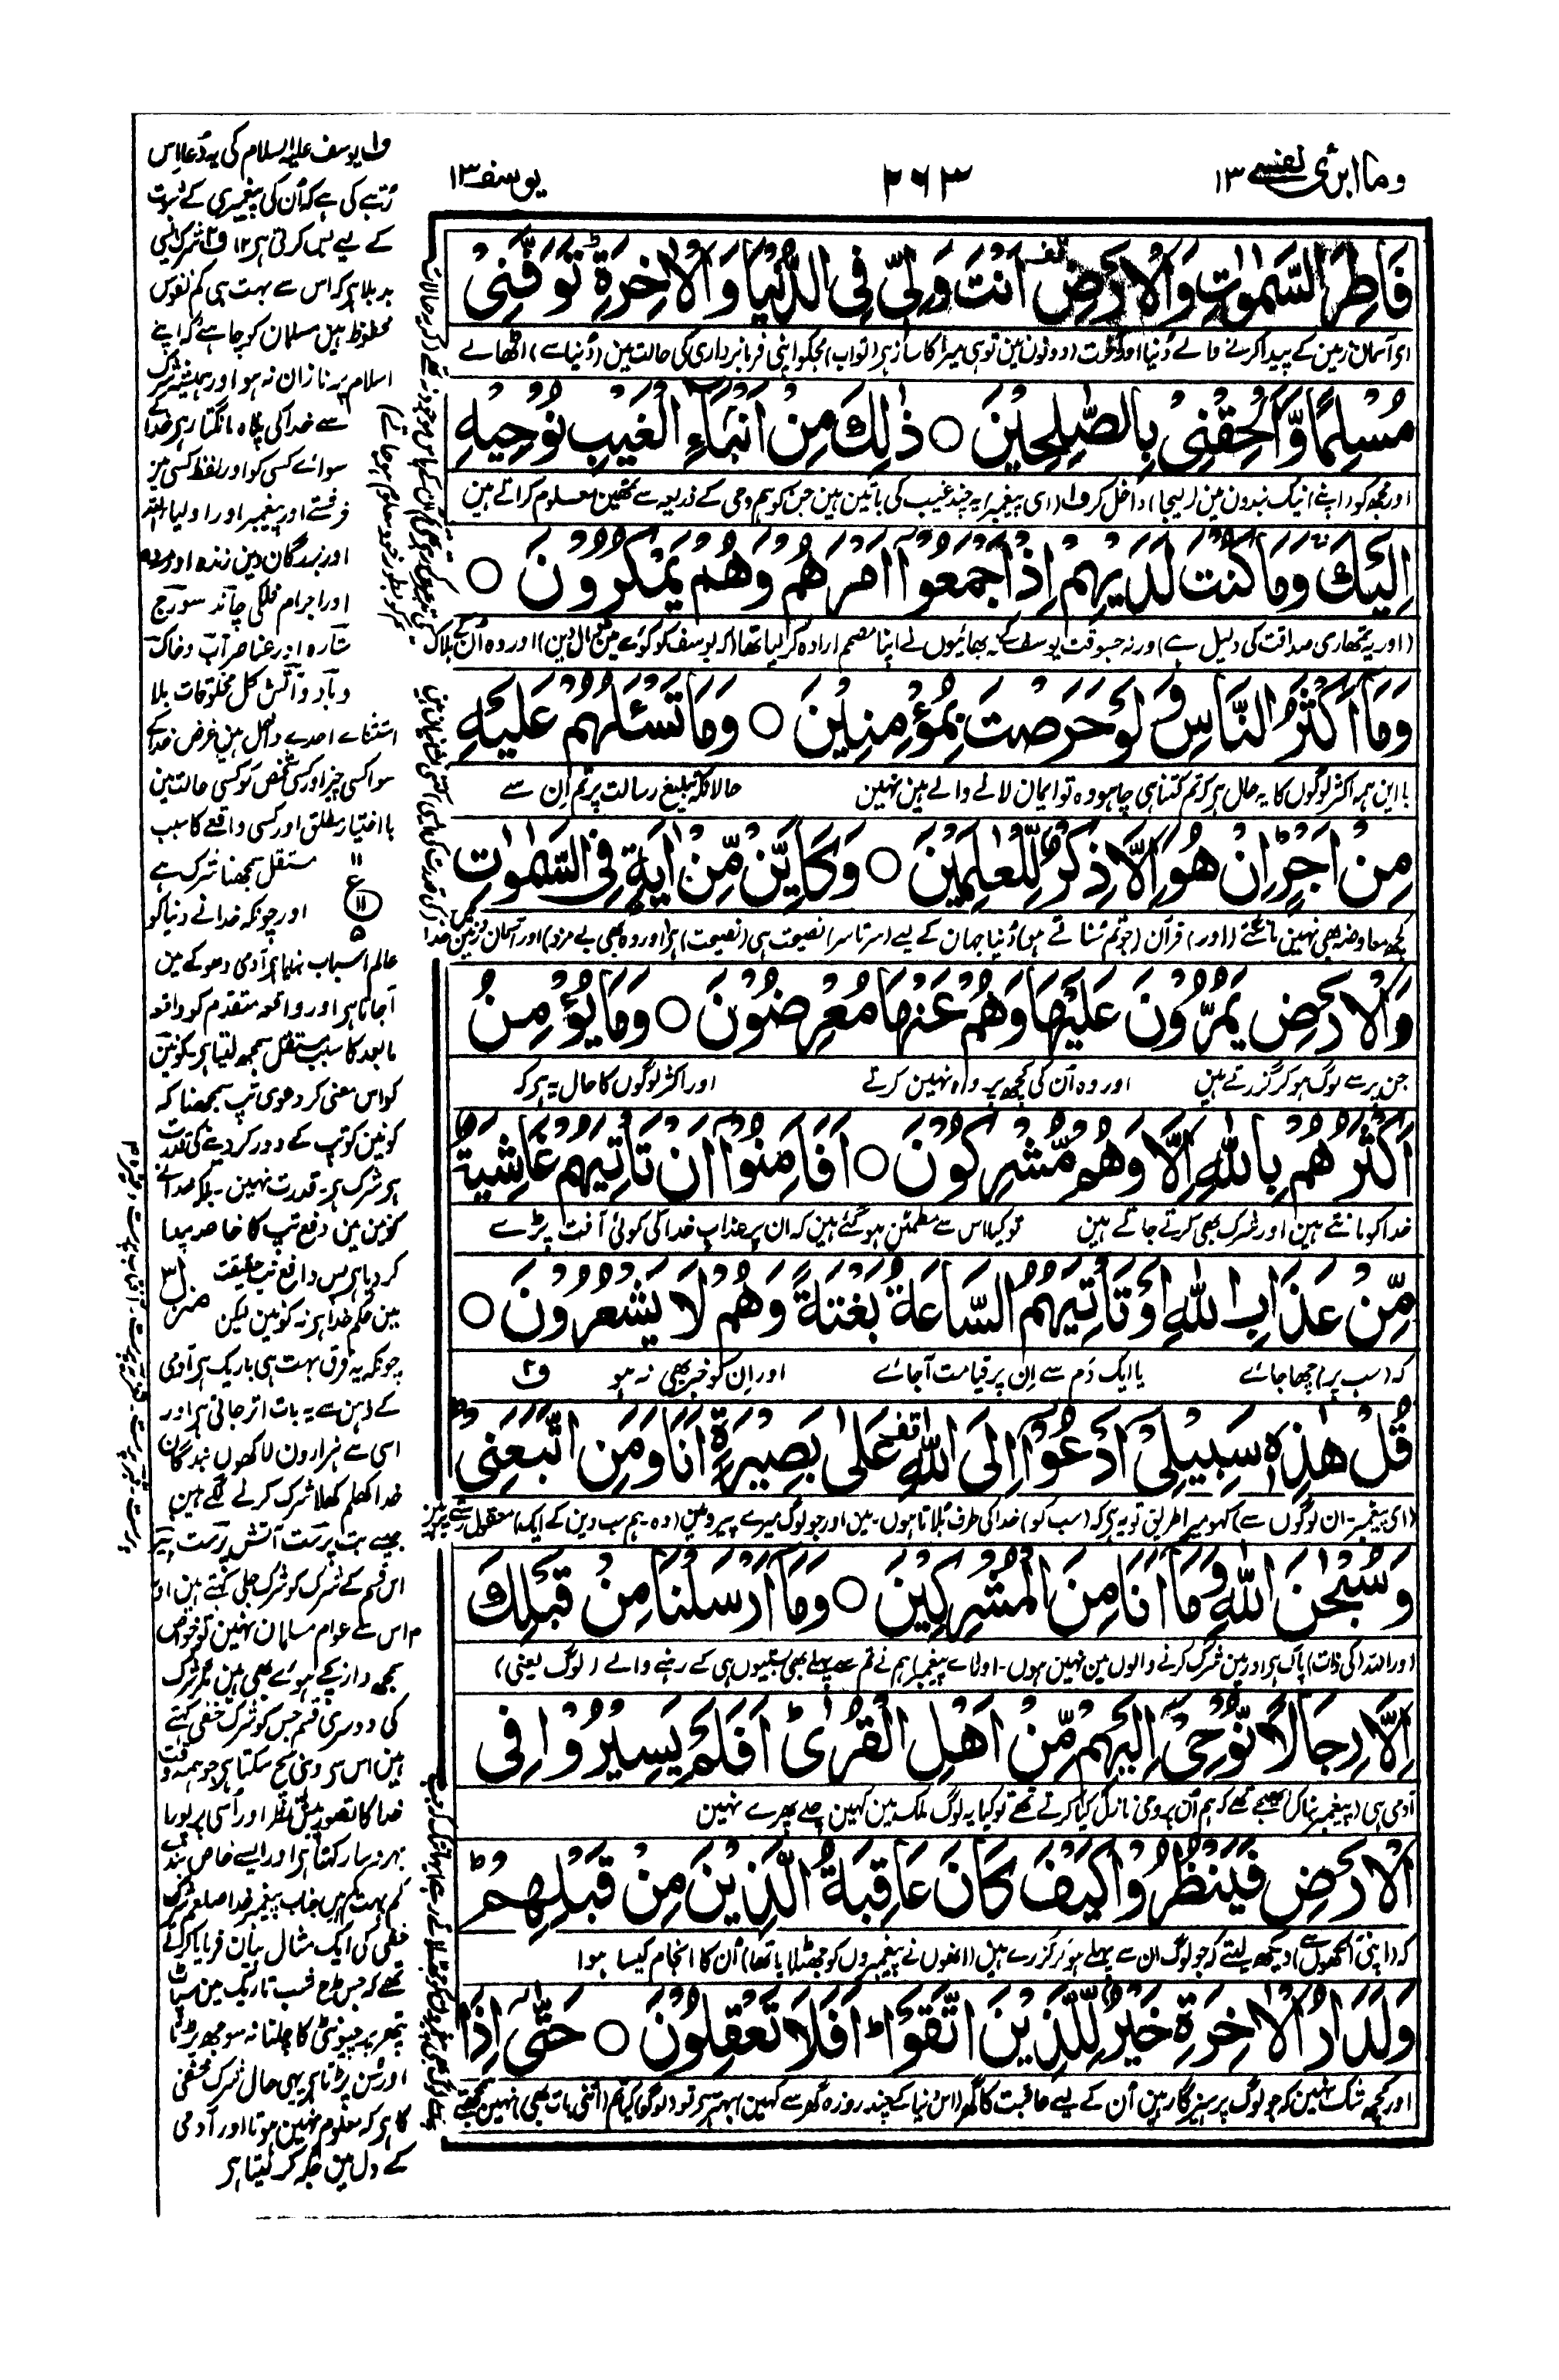 وما ابرئ نفسے ١٣
٣٦٣
يوسف ١٣
فَاطِرَ السَّمٰوٰتِ وَالْاَرْضِ اَنْتَ وَلِيّٖ فِى الدُّنْيَا وَالْاٰخِرَةِ تَوَفَّنِىْ
ای آسمان زمین کے پیدا کرنے والے دُنیا اور آخرت (دونون مین توہی میرا کارساز ہی (تواب) مجکو اپنی فرمانبرداری کی حالت مین (دُنیا سے) اٹھا لے
مُسْلِمًا وَّاَلْحِقْنِىْ بِالصّٰلِحِيْنَ ○ ذٰلِكَ مِنْ اَنْبَآءِ الْغَيْبِ نُوْحِيْهِ
اور مجھکو (اپنے) نیک بندون مین (لیجا) داخل کر ف١ (ای پیغمبر) یہ چند غیب کی باتین ہین جن کو ہم وحی کے ذریعہ سے تمھین معلوم کراتے ہین
اِلَيْكَ وَمَا كُنْتَ لَدَيْهِمْ اِذْ اَجْمَعُوْٓا اَمْرَهُمْ وَهُمْ يَمْكُرُوْنَ ○
(اور یہ تمھاری صداقت کی دلیل ہے) ورنہ جسوقت یوسف کے بھائیوں نے اپنا مصمم ارادہ کر لیا تھا (کہ یوسف کو کوئے مین ڈال دین) اور وہ اُن کے ہلاک
وَمَآ اَكْثَرُ النَّاسِ وَلَوْ حَرَصْتَ بِمُؤْمِنِيْنَ ○ وَمَا تَسْـَٔلُهُمْ عَلَيْهِ
با این ہمہ اکثر لوگوں کا یہ حال ہی کہ تم کتنا ہی چاہو وہ تو ایمان لانے والے ہین نہین حالانکہ تبلیغ رسالت پر تم اِن سے
مِنْ اَجْرٍ اِنْ هُوَ اِلَّا ذِكْرٌ لِّلْعٰلَمِيْنَ ○ وَكَاَيِّنْ مِّنْ اٰيَةٍ فِى السَّمٰوٰتِ
کچھ معاوضہ بھی نہین مانگتے (اور) قرآن (جو تم سُناتے ہو) دُنیا جہان کے لیے (سرتاسر) نصیحت ہی (نصیحت) ہی اور وہ بھی بے مزد) اور آسمان و زمین مین خدا
وَالْاَرْضِ يَمُرُّوْنَ عَلَيْهَا وَهُمْ عَنْهَا مُعْرِضُوْنَ ○ وَمَا يُؤْمِنُ
جن پر سے لوگ ہو کر گزرتے ہین اور وہ اُن کی کچھ پرواہ نہین کرتے اور اکثر لوگوں کا حال یہ ہی کہ
اَكْثَرُهُمْ بِاللّٰهِ اِلَّا وَهُمْ مُّشْرِكُوْنَ ○ اَفَاَمِنُوْٓا اَنْ تَاْتِيَهُمْ غَاشِيَةٌ
خدا کو مانتے ہین اور شرک بھی کرتے جاتے ہین تو کیا اس سے مطمئن ہو گئے ہین کہ ان پر عذاب خدا کی کوئی آفت پڑے
مِّنْ عَذَابِ اللّٰهِ اَوْ تَاْتِيَهُمُ السَّاعَةُ بَغْتَةً وَّهُمْ لَا يَشْعُرُوْنَ ○
کہ (سب پر) چھا جائے یا ایک دَم سے اِن پر قیامت آجائے اور اِن کو خبر بھی نہ ہو ف٢
قُلْ هٰذِهٖ سَبِيْلِىْٓ اَدْعُوْٓا اِلَى اللّٰهِ عَلٰى بَصِيْرَةٍ اَنَا وَمَنِ اتَّبَعَنِىْ
(ای پیغمبر۔ ان لوگوں سے) کہو میرا طریق تو یہ ہی کہ (سب کو) خدا کی طرف بُلاتا ہوں۔ مین اور جو لوگ میرے پیرو ہین (وہ۔ ہم سب دین کے ایک) معقول رستے پر ہین
وَسُبْحٰنَ اللّٰهِ وَمَآ اَنَا مِنَ الْمُشْرِكِيْنَ ○ وَمَآ اَرْسَلْنَا مِنْ قَبْلِكَ
(اور اللہ) کی ذات) پاک ہی اور مین شرک کرنے والوں مین نہین ہوں۔ اور اے پیغمبر) ہم نے تم سے پہلے بھی بستیوں ہی کے رہنے والے (لوگ یعنی)
اِلَّا رِجَالًا نُّوْحِىْٓ اِلَيْهِمْ مِّنْ اَهْلِ الْقُرٰى اَفَلَمْ يَسِيْرُوْا فِى
آدمی ہی (پیغمبر بنا کر) بھیجے تھے کہ ہم اُن پر وحی نازل کیا کرتے تھے تو کیا یہ لوگ ملک مین کہین چلے پھرے نہین
الْاَرْضِ فَيَنْظُرُوْا كَيْفَ كَانَ عَاقِبَةُ الَّذِيْنَ مِنْ قَبْلِهِمْ
کہ (اپنی آنکھوں سے) دیکھ لیتے کہ جو لوگ ان سے پہلے ہو گزرے ہین (انھوں نے پیغمبروں کو جھٹلایا تھا) اُن کا انجام کیسا ہوا
وَلَدَارُ الْاٰخِرَةِ خَيْرٌ لِّلَّذِيْنَ اتَّقَوْا اَفَلَا تَعْقِلُوْنَ ○ حَتّٰىٓ اِذَا
اور کچھ شک نہین کہ جو لوگ پرہیزگار ہین اُن کے لیے عاقبت کا گھر (اس دُنیا کے چند روزہ گھر سے کہین) بہتر ہی تو (لوگو) کیا تم (اتنی بات بھی) نہین سمجھتے
ف١ یوسف علیہ السلام کی یہ دُعا اِس
رُتبے کی ہے کہ اُن کی پیغمبری کے ثبوت
کے لیے بس کرتی ہی ١٢ ف٢ شرک ایسی
بد بلا ہی کہ اس سے بہت ہی کم نفوس
محفوظ ہین مسلمان کو چاہئے کہ اپنے
اسلام پہ نازان نہ ہو اور ہمیشہ شرک
سے خدا کی پناہ مانگتا رہی خدا کے
سوائے کسی کو اور لفظ کسی مین
فرشتے اور پیغمبر اور اولیاء اللہ
اور بزرگان دین زندہ اور مردہ
اور اجرام فلکی چاند سورج
ستارہ اور عناصر آب و خاک
و باد و آتش کل مخلوقات بلا
استثنائے احدے داخل ہین غرض خدا کے
سوا کسی چیز اور کسی شخص کو کسی حالت مین
با اختیار مطلق اور کسی واقعے کا سبب
مستقل سمجھنا شرک ہے
١١
ع
١١
٥
اور چونکہ خدا نے دنیا کو
عالم اسباب بنایا ہی آدمی دھوکے مین
آجاتا ہی اور واقعہ متقدم کو واقعہ
مابعد کا سبب مستقل سمجھ لیتا ہی۔ کونین
کو اس معنی کر دعوی تپ سمجھنا کہ
کونین کو تپ کے دور کر دینے کی قدرت
ہی شرک ہی۔ قدرت نہین۔ بلکہ خدا نے
کونین مین دفع تپ کا خاصہ پیدا
کر دیا ہی پس دافع تپ حقیقت
مین حکم خدا ہی نہ کونین لیکن
منزل ٣
چونکہ یہ فرق بہت ہی باریک ہی آدمی
کے ذہن سے یہ بات اتر جاتی ہی اور
اسی سے ہزارون لاکھوں بندگان
خدا کھلم کھلا شرک کرنے لگے ہین
جیسے بت پرست آتش پرست پیر
اس قسم کے شرک کو شرک جلی کہتے ہین اور
اس سے عوام مسلمان نہین تو خواص
سمجھ دار بچے ہوئے بھی ہین مگر شرک
کی دوسری قسم جس کو شرک خفی کہتے
ہین اس سے وہی بچ سکتا ہی جو ہمہ وقت
خدا کا تصور پیش نظر اور اُسی پر پورا
بہروسا رکھتا ہی اور ایسے خاص بندے
کم بہت کم ہین جناب پیغمبر خدا صلعم شرک
خفی کی ایک مثال بیان فرمایا کرتے
تھے کہ جس طرح شب تاریک مین سپاٹ
پتھر پر چیونٹی کا چلنا نہ سوجھ پڑتا
اور نہ سُن پڑتا ہی یہی حال شرک خفی
کا ہی کہ معلوم نہین ہوتا اور آدمی
کے دل مین جگہ کر لیتا ہی